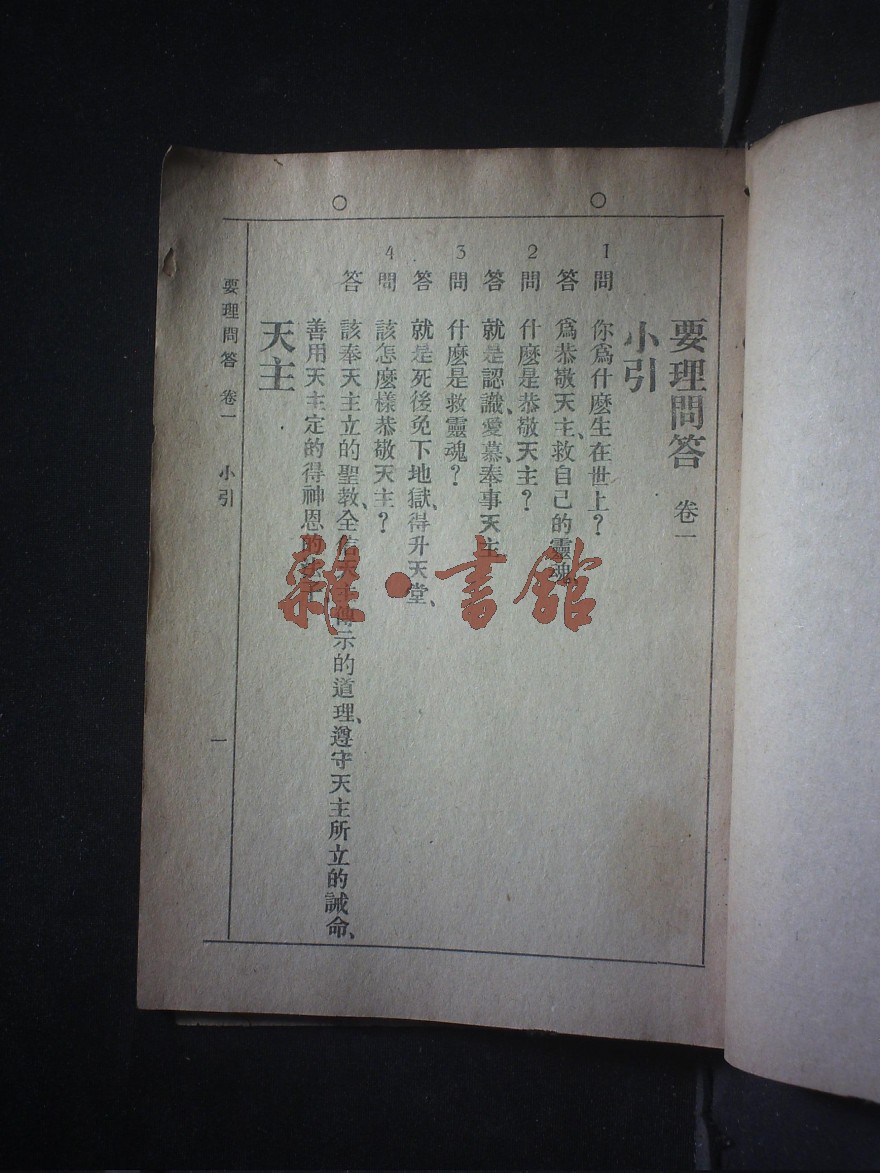 要理問答 卷一
小引
1 問 你爲什麼生在世上?
答 爲恭敬天主、救自己的靈魂、
2 問 什麼是恭敬天主?
答 就是認識、愛慕、奉事天主、
3 問 什麼是救靈魂?
答 就是死後免下地獄、得升天堂、
4 問 該怎麼樣恭敬天主?
答 該奉天主立的聖教、全信天主傳示的道理、遵守天主所立的誡命、
善用天主定的得神恩的法子、
天主
要理問答 卷一 小引 一
雜·書館